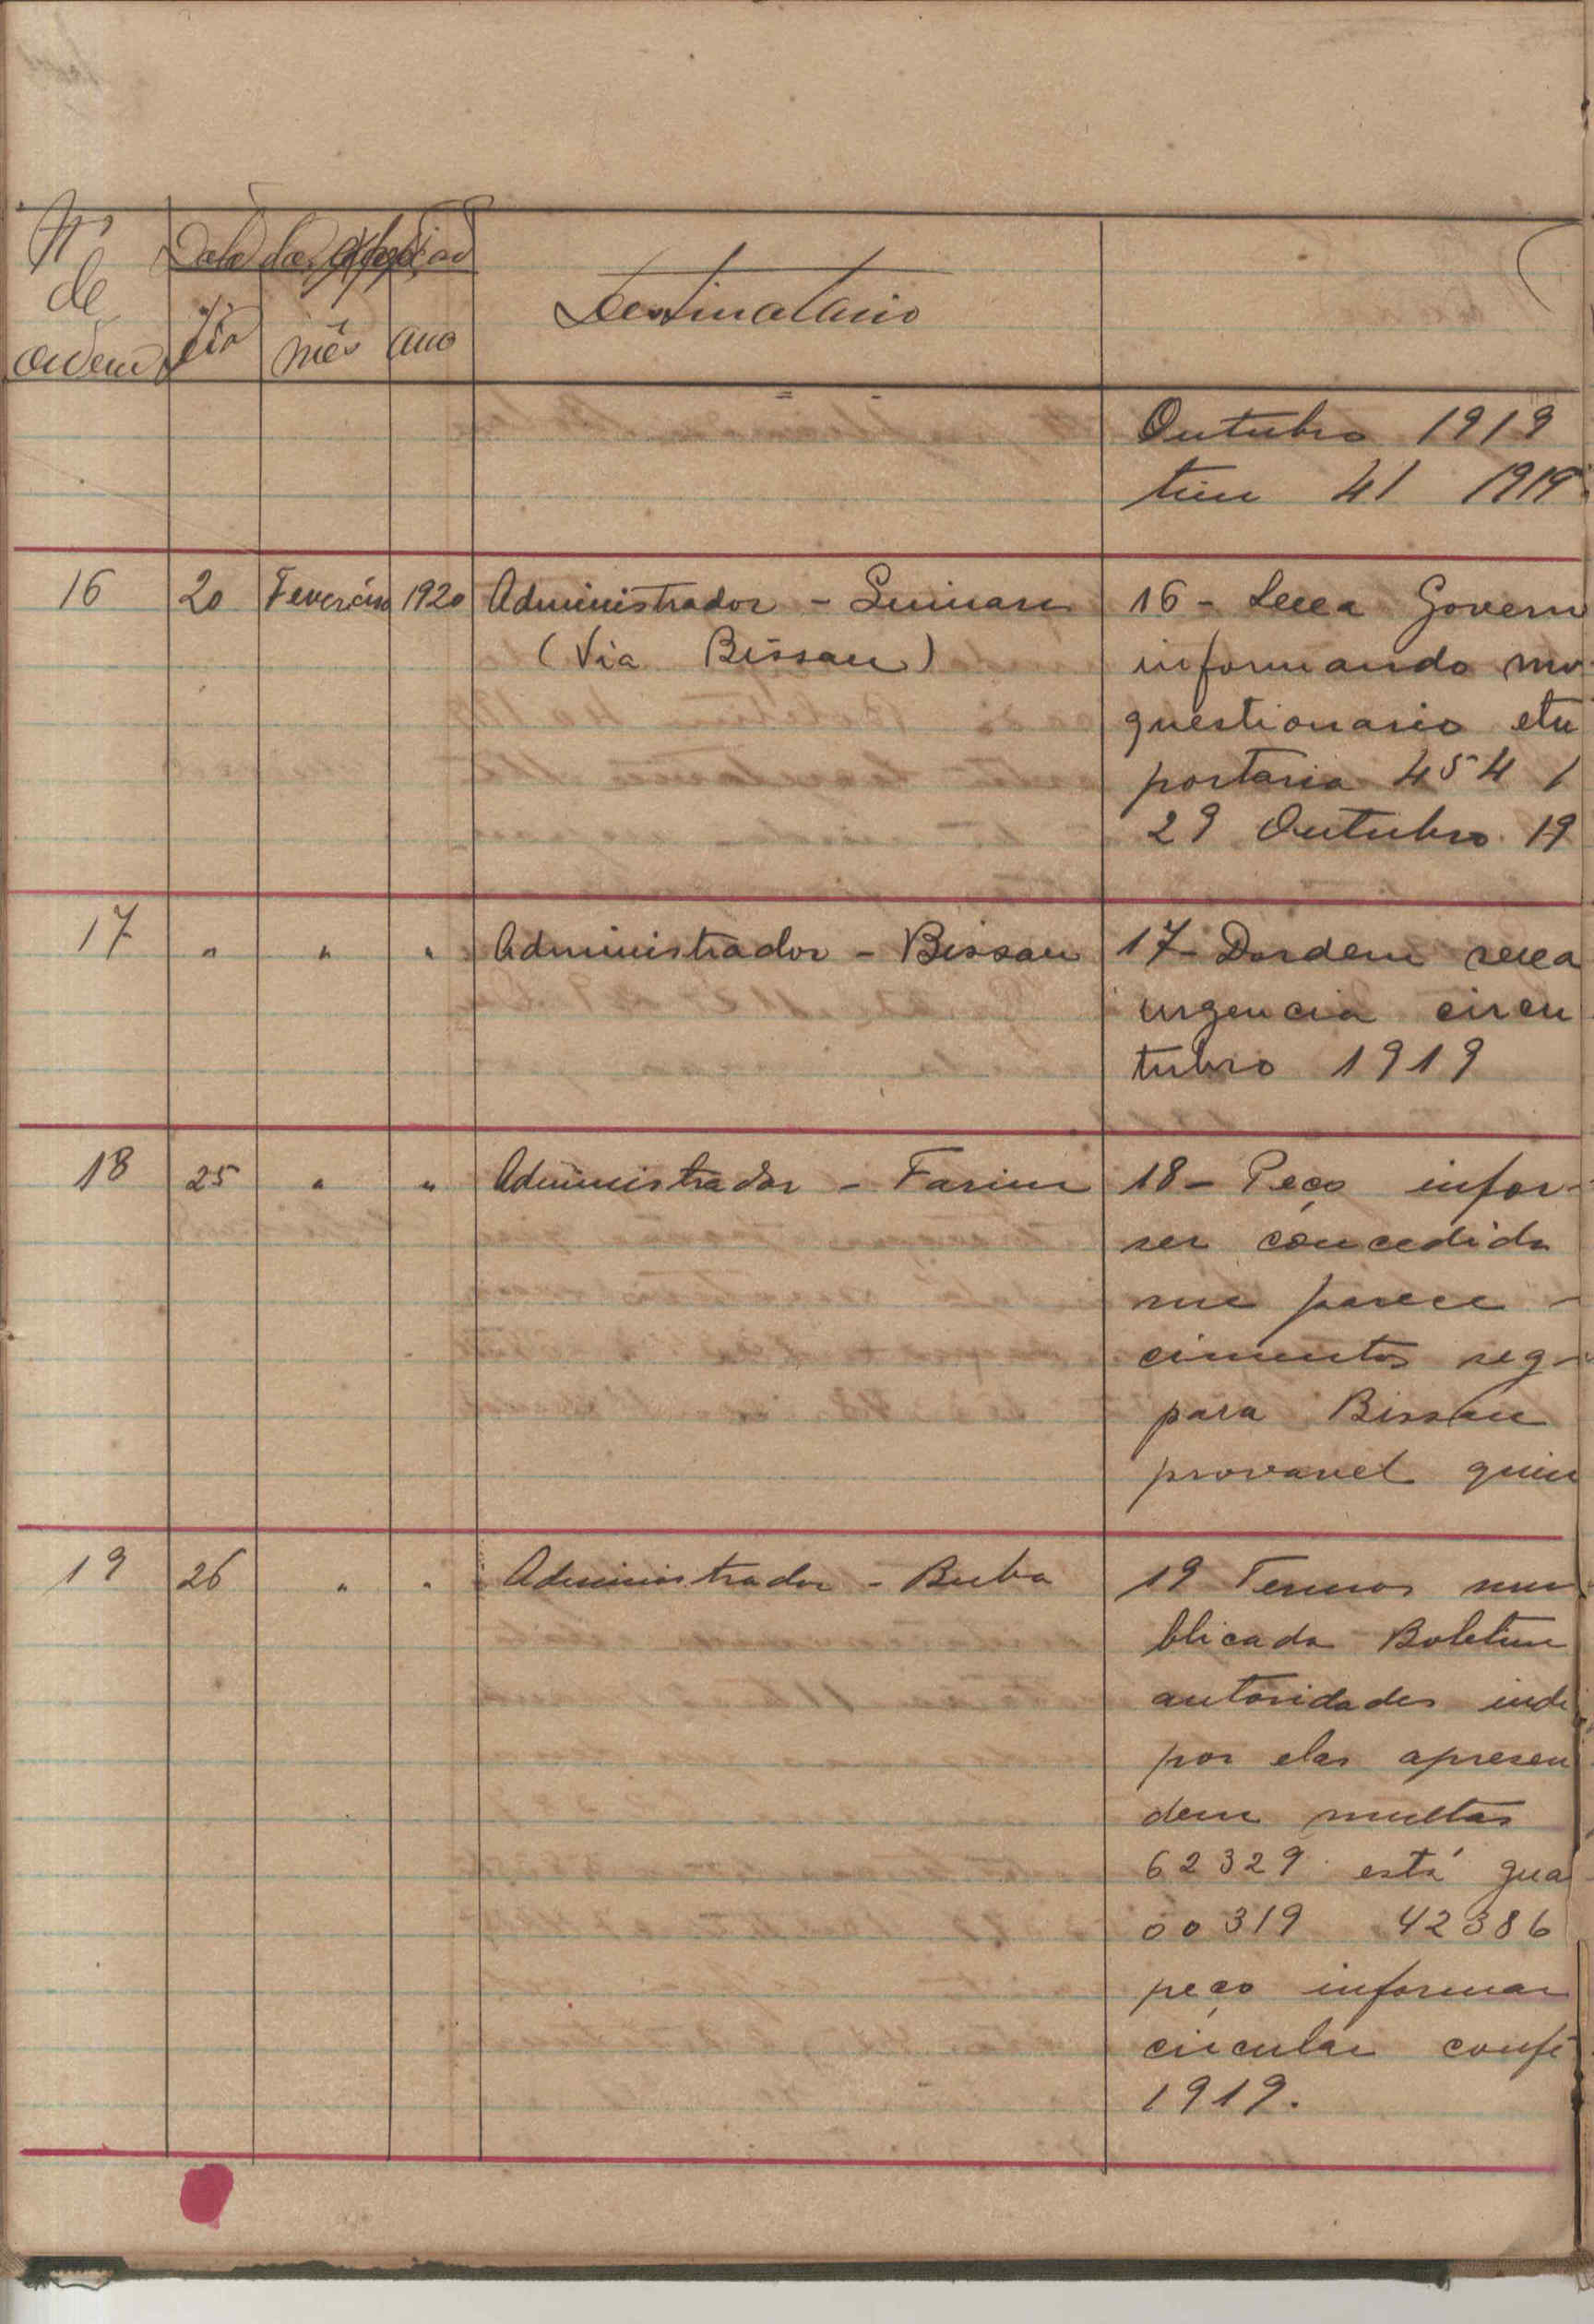 Nº de ordem
Data da expedição
dia mês ano
Destinatario
Outubro 1919
tim 41 1919
16 20 Fevereiro 1920 Administrador - 16 - Secca Govern
(Via Bissau) informando
questionario
portaria 454
29 Outubro 19
17 " " " Administrador - Bissau 17 - Dordem secca
urgencia circu
tubro 1919
18 25 " " Administrador - Farim 18 - Peço infor
ser concedida
me parece
cimentos seg
para Bissau
provavel quin
19 26 " " Administrador - Buba 19 Termos
blicada Boletim
autoridades indi
por elas apresen
dem multas
62329 está gua
00319 42386
peço informar
circular confi
1919.